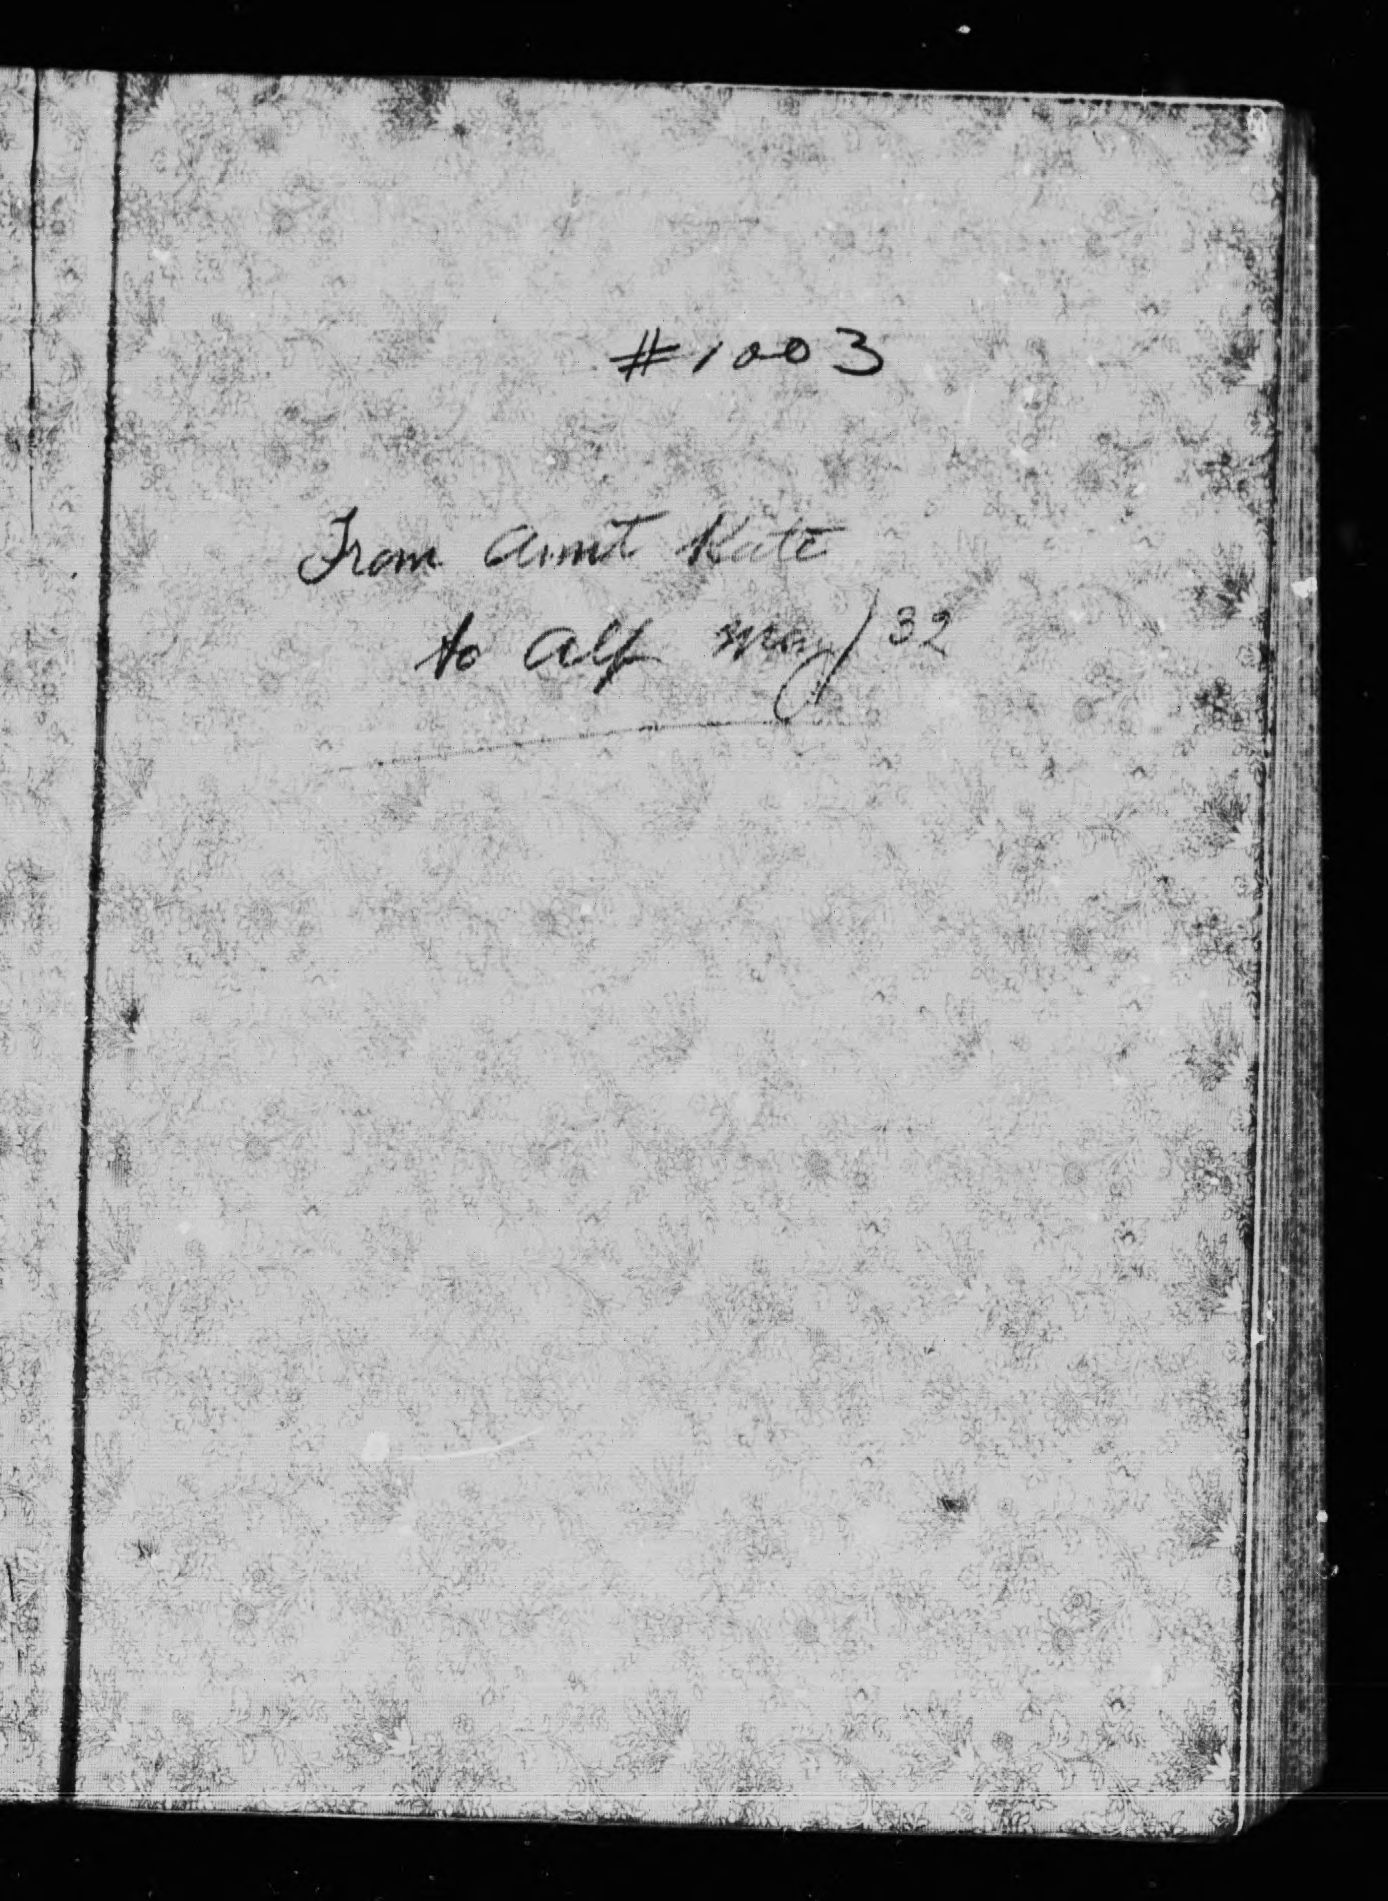 #1003
From Aunt Kate
to Alf May/32